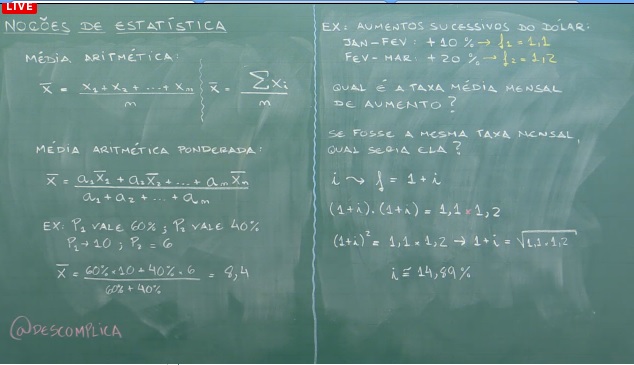 LIVE
NOÇÕES DE ESTATÍSTICA
MÉDIA ARITMÉTICA:
X̅ = x₁ + x₂ + ... + xₙ / n
X̅ = ∑xᵢ / n
MÉDIA ARITMÉTICA PONDERADA:
X̅ = a₁X̅₁ + a₂X̅₂ + ... + aₙX̅ₙ / a₁ + a₂ + ... + aₙ
EX: P₁ VALE 60% ; P₂ VALE 40%
P₁ → 10 ; P₂ = 6
X̅ = 60% · 10 + 40% · 6 / 60% + 40% = 8,4
@DESCOMPLICA
EX: AUMENTOS SUCESSIVOS DO DÓLAR:
JAN-FEV: +10% → f₁ = 1,1
FEV-MAR: +20% → f₂ = 1,2
QUAL É A TAXA MÉDIA MENSAL
DE AUMENTO?
SE FOSSE A MESMA TAXA MENSAL,
QUAL SERIA ELA?
i ⤳ f = 1 + i
(1+i) · (1+i) = 1,1 × 1,2
(1+i)² = 1,1 × 1,2 → 1+i = √1,1 · 1,2
i ≅ 14,89%